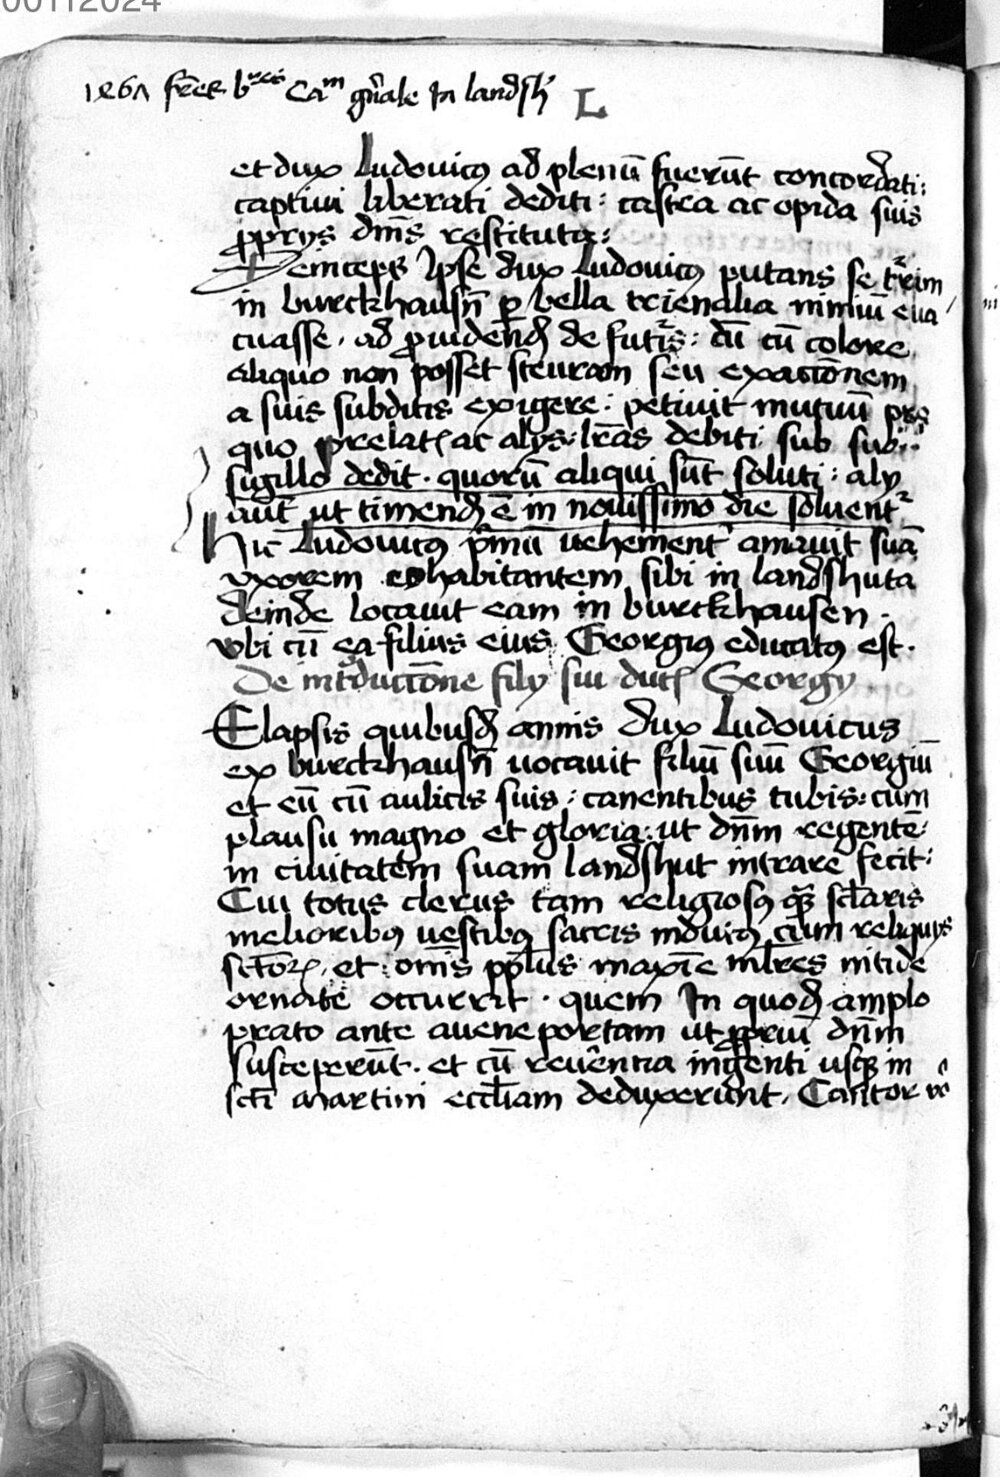 00112024
1461 frēs b... Ca^m gn̄ale In landsh
L
et dux Ludovicꝰ ad plenū fuerūt concordati:
captivi liberati dediti: castra ac opida suis
ꝓprys dn̄is restituta:
Deinceps Ipse dux Ludovicꝰ putans se
in burckhausn̄ ꝑ bella trienalia nimiū eua
cuasse. ad ꝓuidend de futuris: cū cū colore
aliquo non posset steuram seu exactionem
a suis subditis exigere: petiuit mutuū pro
quo prelatꝭ ac alys: lr̄as debiti sub suo
sugillo dedit. quorū aliqui sūt soluti: aly
aut̄ ut timend ē in nouissimo die soluent
Hic Ludovicꝰ pͥmū vehement amauit suā
vxorem cohabitantem sibi in landshuta
deinde locauit eam in burckhausen.
vbi cū ea filius eius Georgiꝰ educatꝰ est.
De introductiōne fily sui ducꝭ Georgy
Elapsis quibusd annis dux Ludovicus
ex burckhausn̄ uocauit filiū suū Georgiū
et eū cū aulicis suis: canentibus tubis: cum
plausu magno et gloria: ut dn̄m regentē:
in ciuitatem suam landshut intrare fecit:
Cui totus clerus tam religiosꝰ qͣꝫ scl̄aris
melioribꝰ uestibꝰ sacris indutꝰ cum reliquys
sctōrꝭ. et om̄is ppl̄us maxīe ml̄res nitide
ornate occurrit. quem In quod amplo
prato ante auene portam ut ꝓpriū dn̄m
susceperūt. et cū reuēntia ingenti usqꝫ in
sctī martini eccl̄iam deduxerunt. Cantor vͦ